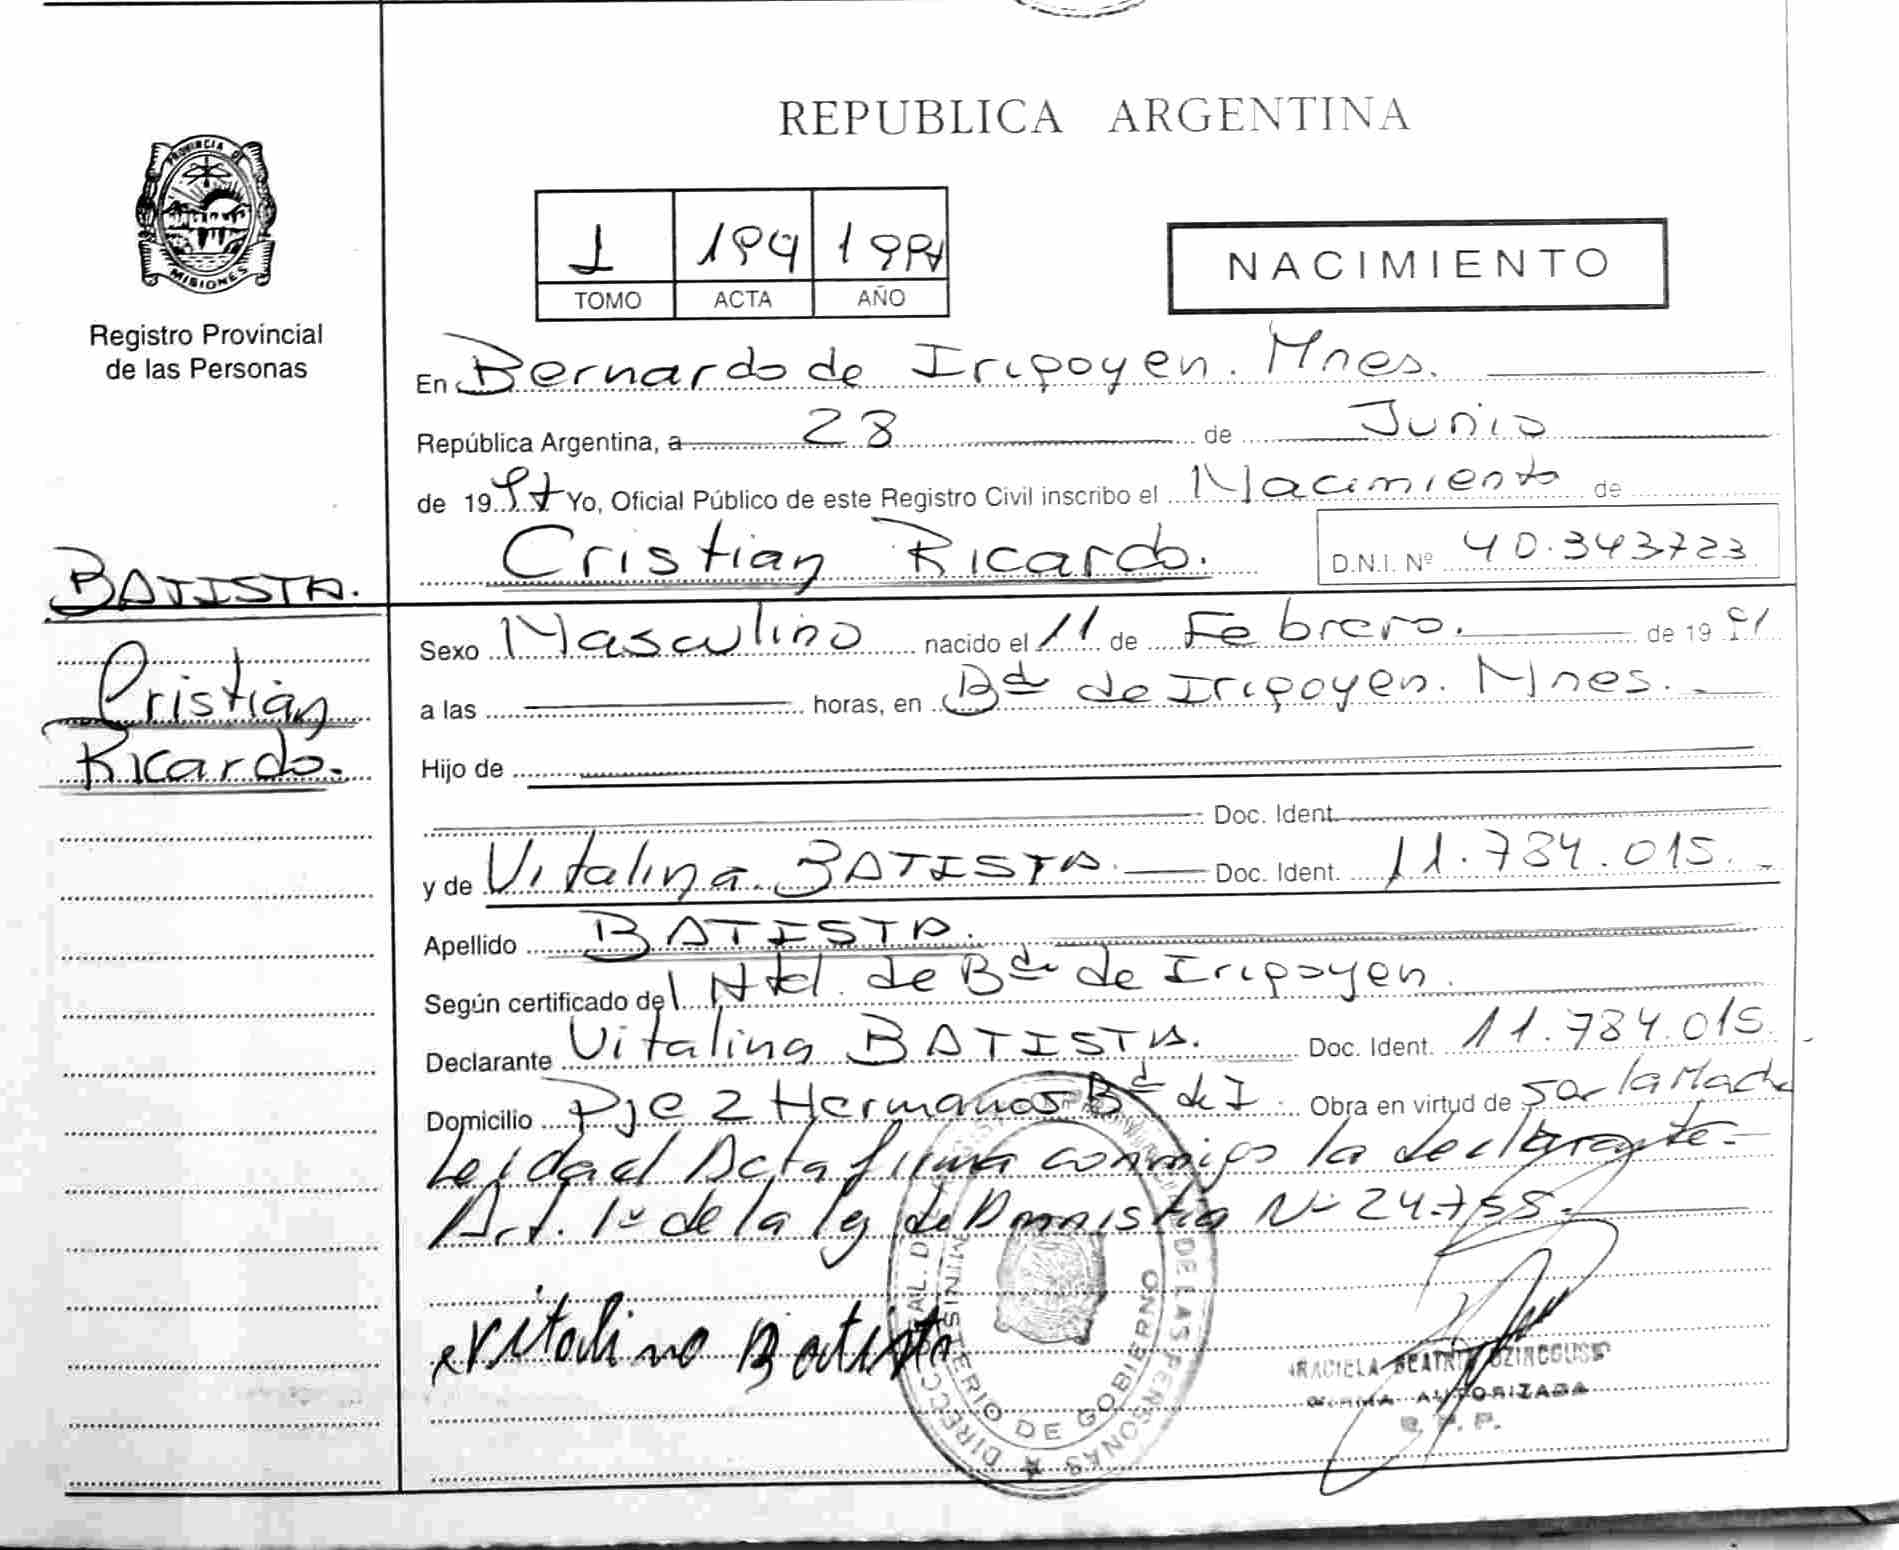 REPUBLICA ARGENTINA
PROVINCIA DE MISIONES
Registro Provincial
de las Personas
1 199 199
TOMO ACTA AÑO
NACIMIENTO
En Bernardo de Irigoyen. Mnes.
República Argentina, a 28 de Junio
de 1997 Yo, Oficial Público de este Registro Civil inscribo el Nacimiento de
Cristian Ricardo. D.N.I. Nº 40.343723
BATISTA.
Cristian
Ricardo.
Sexo Masculino nacido el 11 de Febrero. de 19 91
a las horas, en Bdo de Irigoyen. Mnes.
Hijo de
Doc. Ident.
y de Vitalina BATISTA. Doc. Ident. 11.784.015.
Apellido BATISTA.
Según certificado del Htal. de Bdo de Irigoyen
Declarante Vitalina BATISTA. Doc. Ident. 11.784.015.
Domicilio Pje 2 Hermanas Bdo de I. Obra en virtud de ser la Madre
Leida el Acta firma conmigo la declarante.
Art. 1º de la ley de Amnistia Nº 24.755.
Vitalina Batista
DIRECCION PROVINCIAL DE LAS PERSONAS
MINISTERIO DE GOBIERNO
GRACIELA BEATRIZ
FIRMA AUTORIZADA
R. P. P.